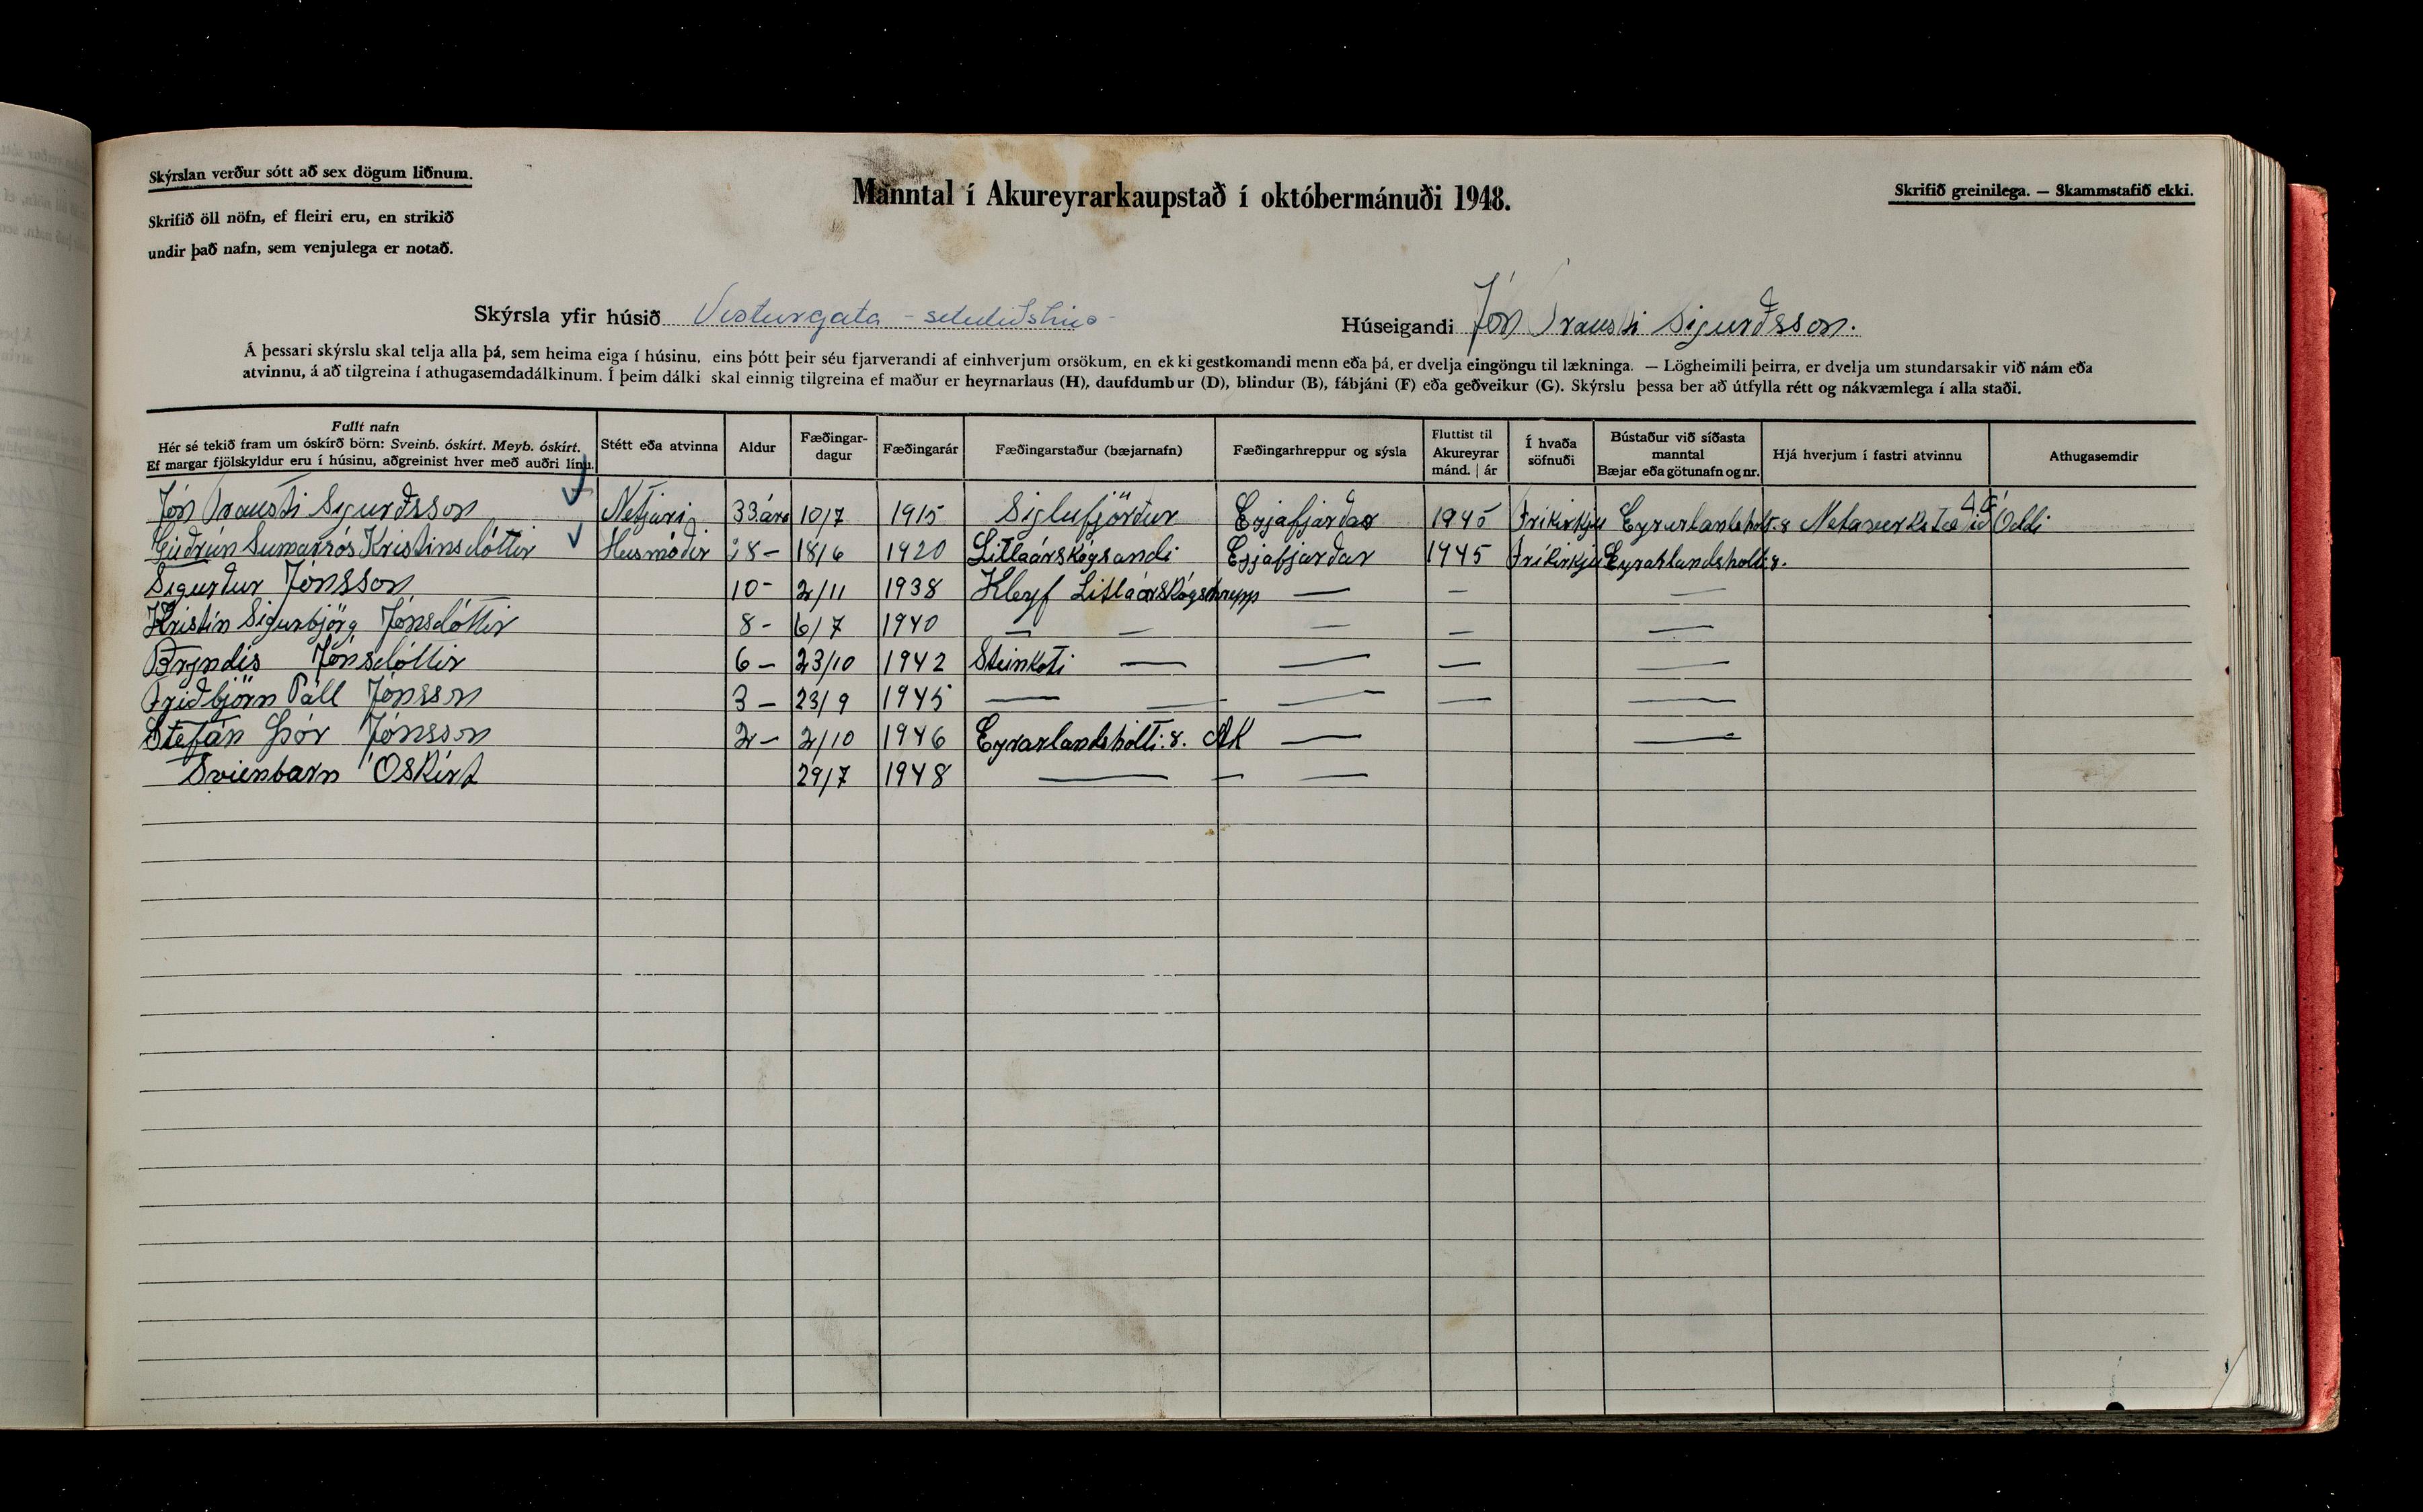 Skýrslan verður sótt að sex dögum liðnum.
Skrifið öll nöfn, ef fleiri eru, en strikið
undir það nafn, sem venjulega er notað.
Manntal í Akureyrarkaupstað í októbermánuði 1948.
Skrifið greinilega. — Skammstafið ekki.
Skýrsla yfir húsið Vesturgata
Húseigandi Jón Trausti Sigurðsson.
Á þessari skýrslu skal telja alla þá, sem heima eiga í húsinu, eins þótt þeir séu fjarverandi af einhverjum orsökum, en ekki gestkomandi menn eða þá, er dvelja eingöngu til lækninga. — Lögheimili þeirra, er dvelja um stundarsakir við nám eða
atvinnu, á að tilgreina í athugasemdadálkinum. Í þeim dálki skal einnig tilgreina ef maður er heyrnarlaus (H), daufdumbur (D), blindur (B), fábjáni (F) eða geðveikur (G). Skýrslu þessa ber að útfylla rétt og nákvæmlega í alla staði.
Fullt nafn
Hér sé tekið fram um óskírð börn: Sveinb. óskírt. Meyb. óskírt.
Ef margar fjölskyldur eru í húsinu, aðgreinist hver með auðri línu.
Stétt eða atvinna
Aldur
Fæðingar-
dagur
Fæðingarár
Fæðingarstaður (bæjarnafn)
Fæðingarhreppur og sýsla
Fluttist til
Akureyrar
mánd. | ár
Í hvaða
söfnuði
Bústaður við síðasta
manntal
Bæjar eða götunafn og nr.
Hjá hverjum í fastri atvinnu
Athugasemdir
Jón Trausti Sigurðsson Netjari 33 ára 10/7 1915 Siglufjörður Eyjafjarðar 1945 Fríkirkju Eyrarlandsholt 8 Netaverkstæðið Oddi
Guðrún Sumarrós Kristinsdóttir Húsmóðir 28 – 18/6 1920 Litlaárskógsandi Eyjafjarðar 1945 Fríkirkju Eyrarlandsholt 8.
Sigurður Jónsson 10 – 2/11 1938 Kleyf Litlaárskógshrepp — — —
Kristín Sigurbjörg Jónsdóttir 8 – 6/7 1940 — — — — —
Bryndís Jónsdóttir 6 – 23/10 1942 Steinkoti — — — —
Friðbjörn Páll Jónsson 3 – 23/9 1945 — — — — —
Stefán Þór Jónsson 2 – 2/10 1946 Eyrarlandsholti 8. AK — —
Sveinbarn Óskírt 29/7 1948 — — —